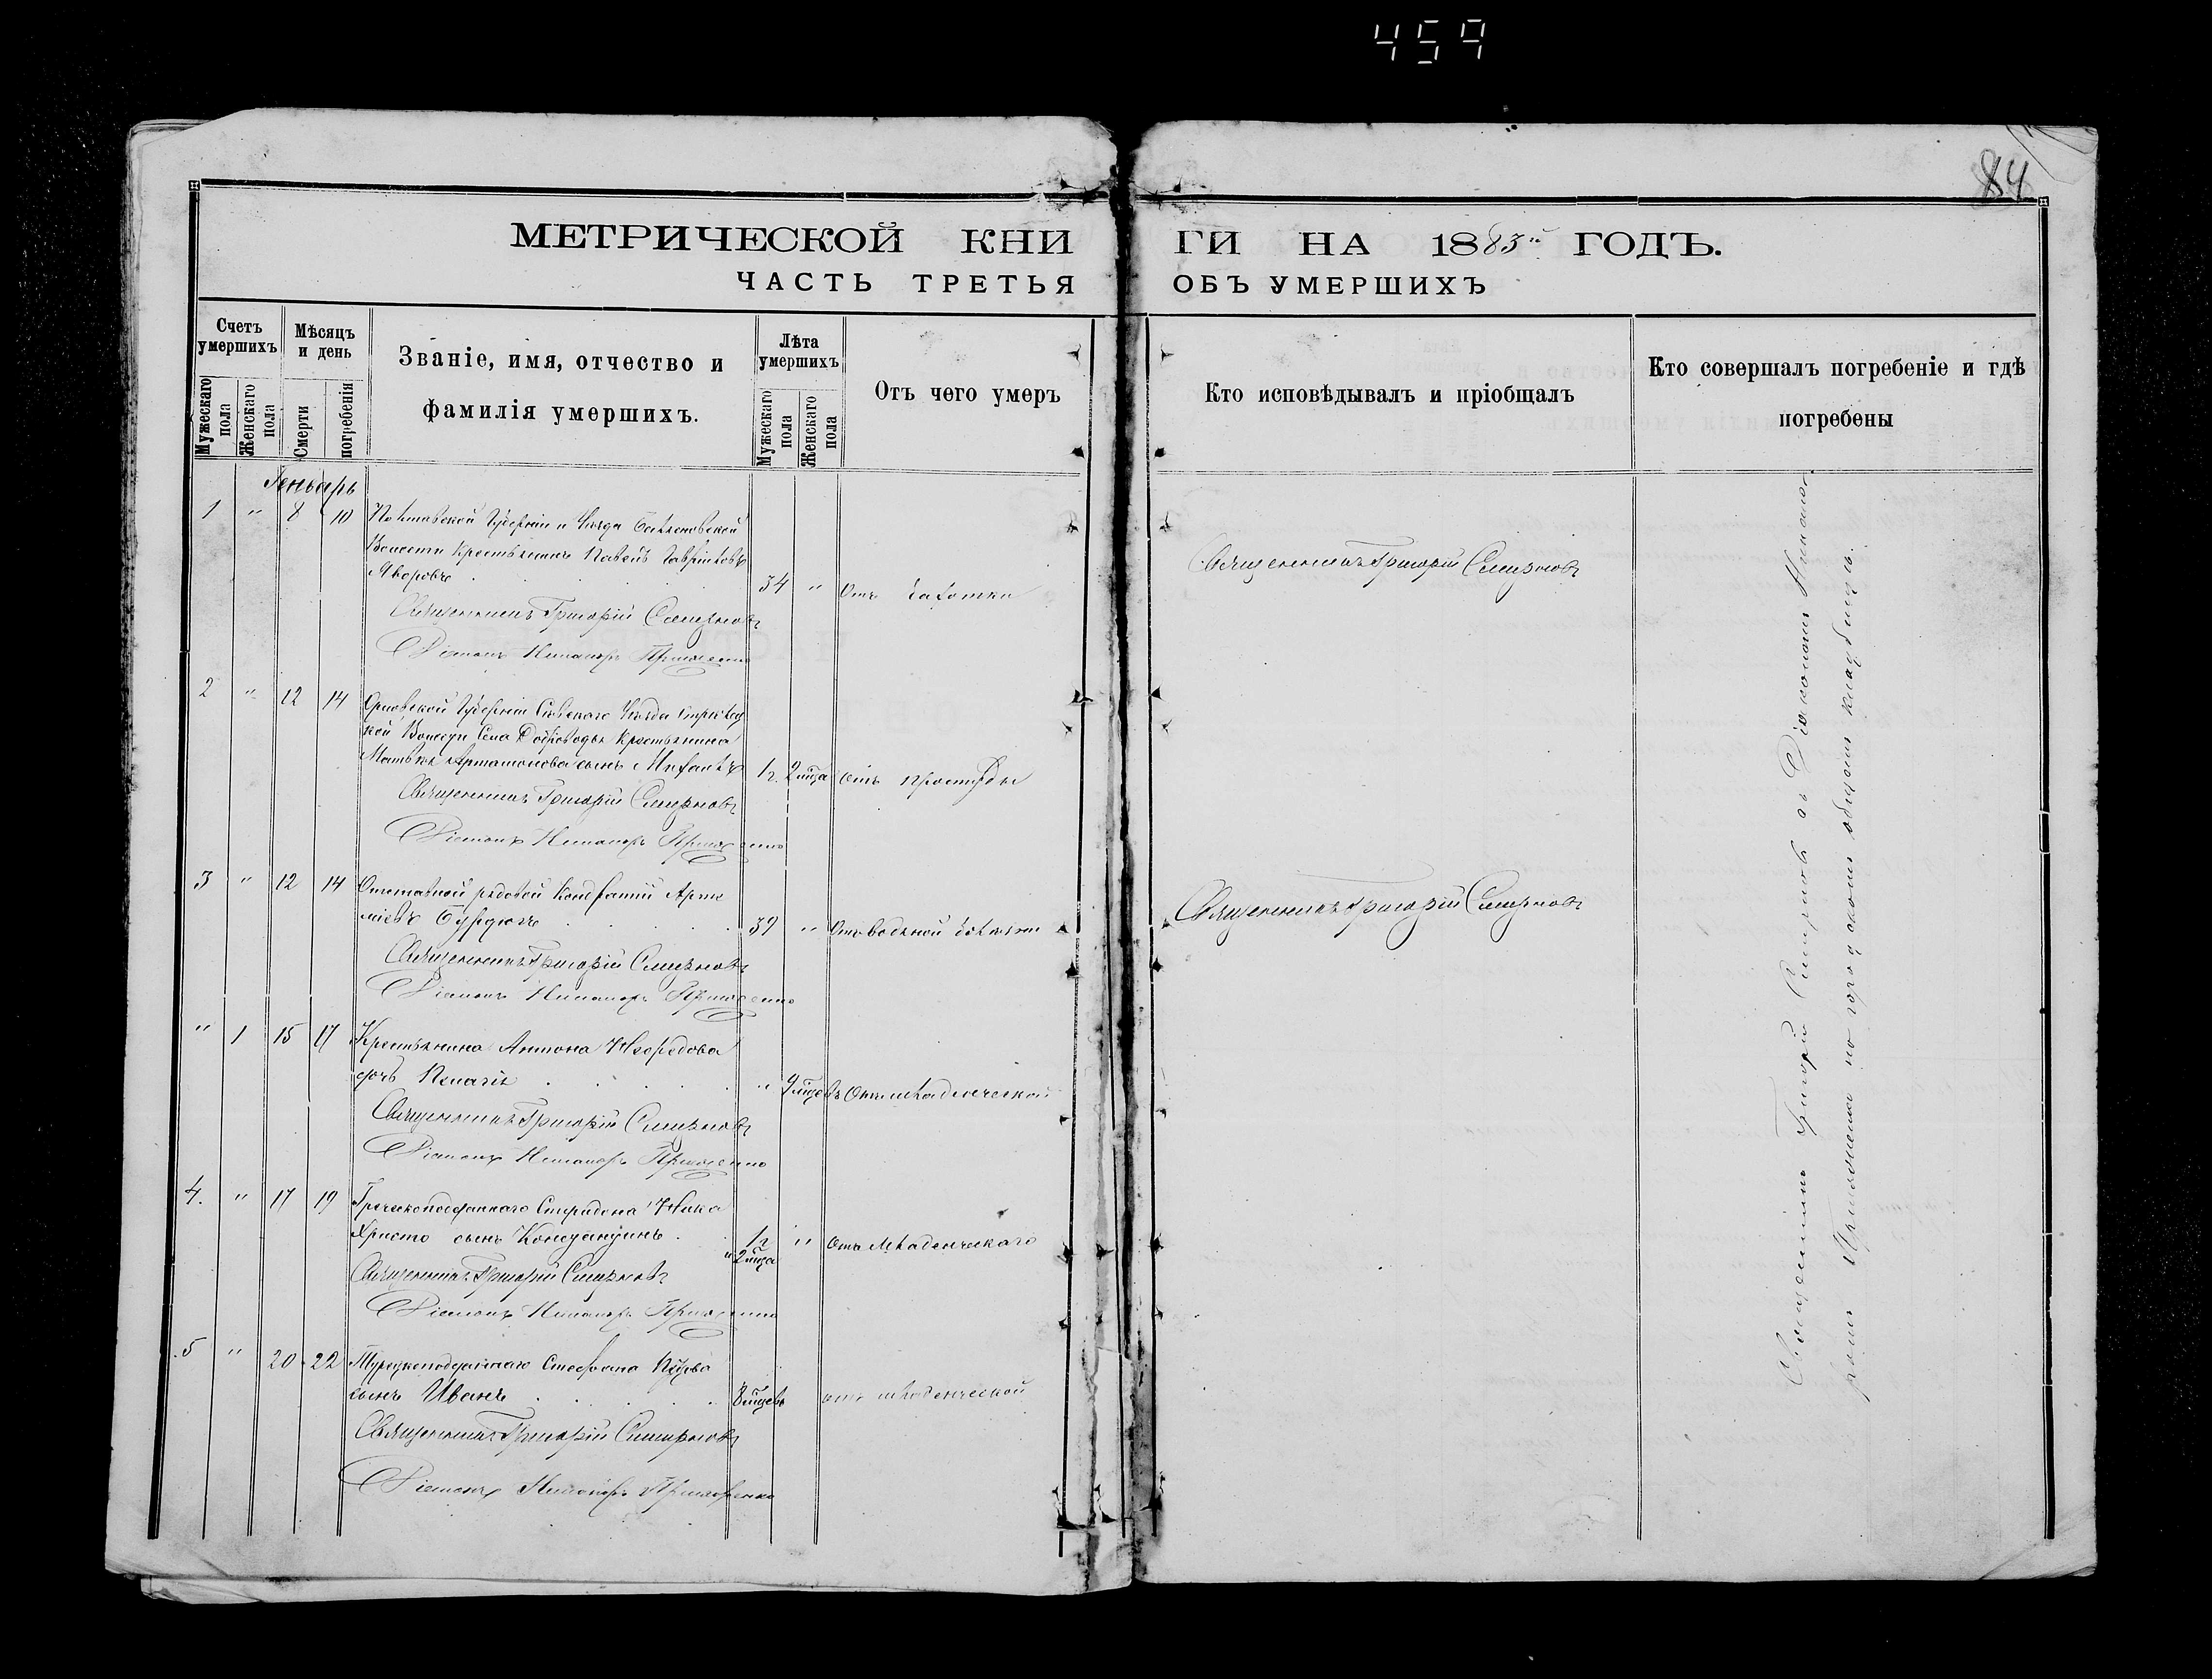 459
84
МЕТРИЧЕСКОЙ КНИ ГИ НА 1883й ГОДЪ.
ЧАСТЬ ТРЕТЬЯ ОБЪ УМЕРШИХЪ
Счетъ умершихъ
Мужескаго пола
Женскаго пола
Мѣсяцъ и день
Смерти
погребенія
Званіе, имя, отчество и
фамилія умершихъ.
Лѣта умершихъ
Мужескаго пола
Женскаго пола
Отъ чего умеръ
Кто исповѣдывалъ и пріобщалъ
Кто совершалъ погребеніе и гдѣ
погребены
Генварь
1 " 8 10 Полтавской Губерніи и Уѣзда
Волости Крестьянинъ Павелъ Гавріиловъ
Яворовъ 34 " Отъ чахотки
Священникъ Григорій Смирновъ
Священникъ Григорій Смирновъ
Діаконъ Никаноръ
2 " 12 14 Орловской Губерніи Сѣвскаго Уѣзда
кой Волости Села Доброводья Крестьянина
Матвѣя Артамонова сынъ 1 г. 2 мѣца отъ простуды
Священникъ Григорій Смирновъ
Діаконъ Никаноръ
3 " 12 14 Отставной рядовой
39 " Отъ водяной болѣзни
Священникъ Григорій Смирновъ
Священникъ Григорій Смирновъ
Діаконъ Никаноръ
" 1 15 17 Крестьянина Антона
дочь Пелагія " 9 мѣцевъ Отъ младенческой
Священникъ Григорій Смирновъ
Діаконъ Никаноръ
4. " 17 19 Греческоподданнаго Спиридона
Христо сынъ Константинъ 1 г. и 2 мѣца " Отъ младенческаго
Священникъ Григорій Смирновъ
Діаконъ Никаноръ
5 " 20 22 Турецкоподданнаго Стефана
сынъ Иванъ 8 мѣцевъ отъ младенческой
Священникъ Григорій Смирновъ
Діаконъ Никаноръ
Священникъ Григорій Смирновъ съ Діакономъ Никано-
ромъ на городскомъ общемъ кладбищѣ.